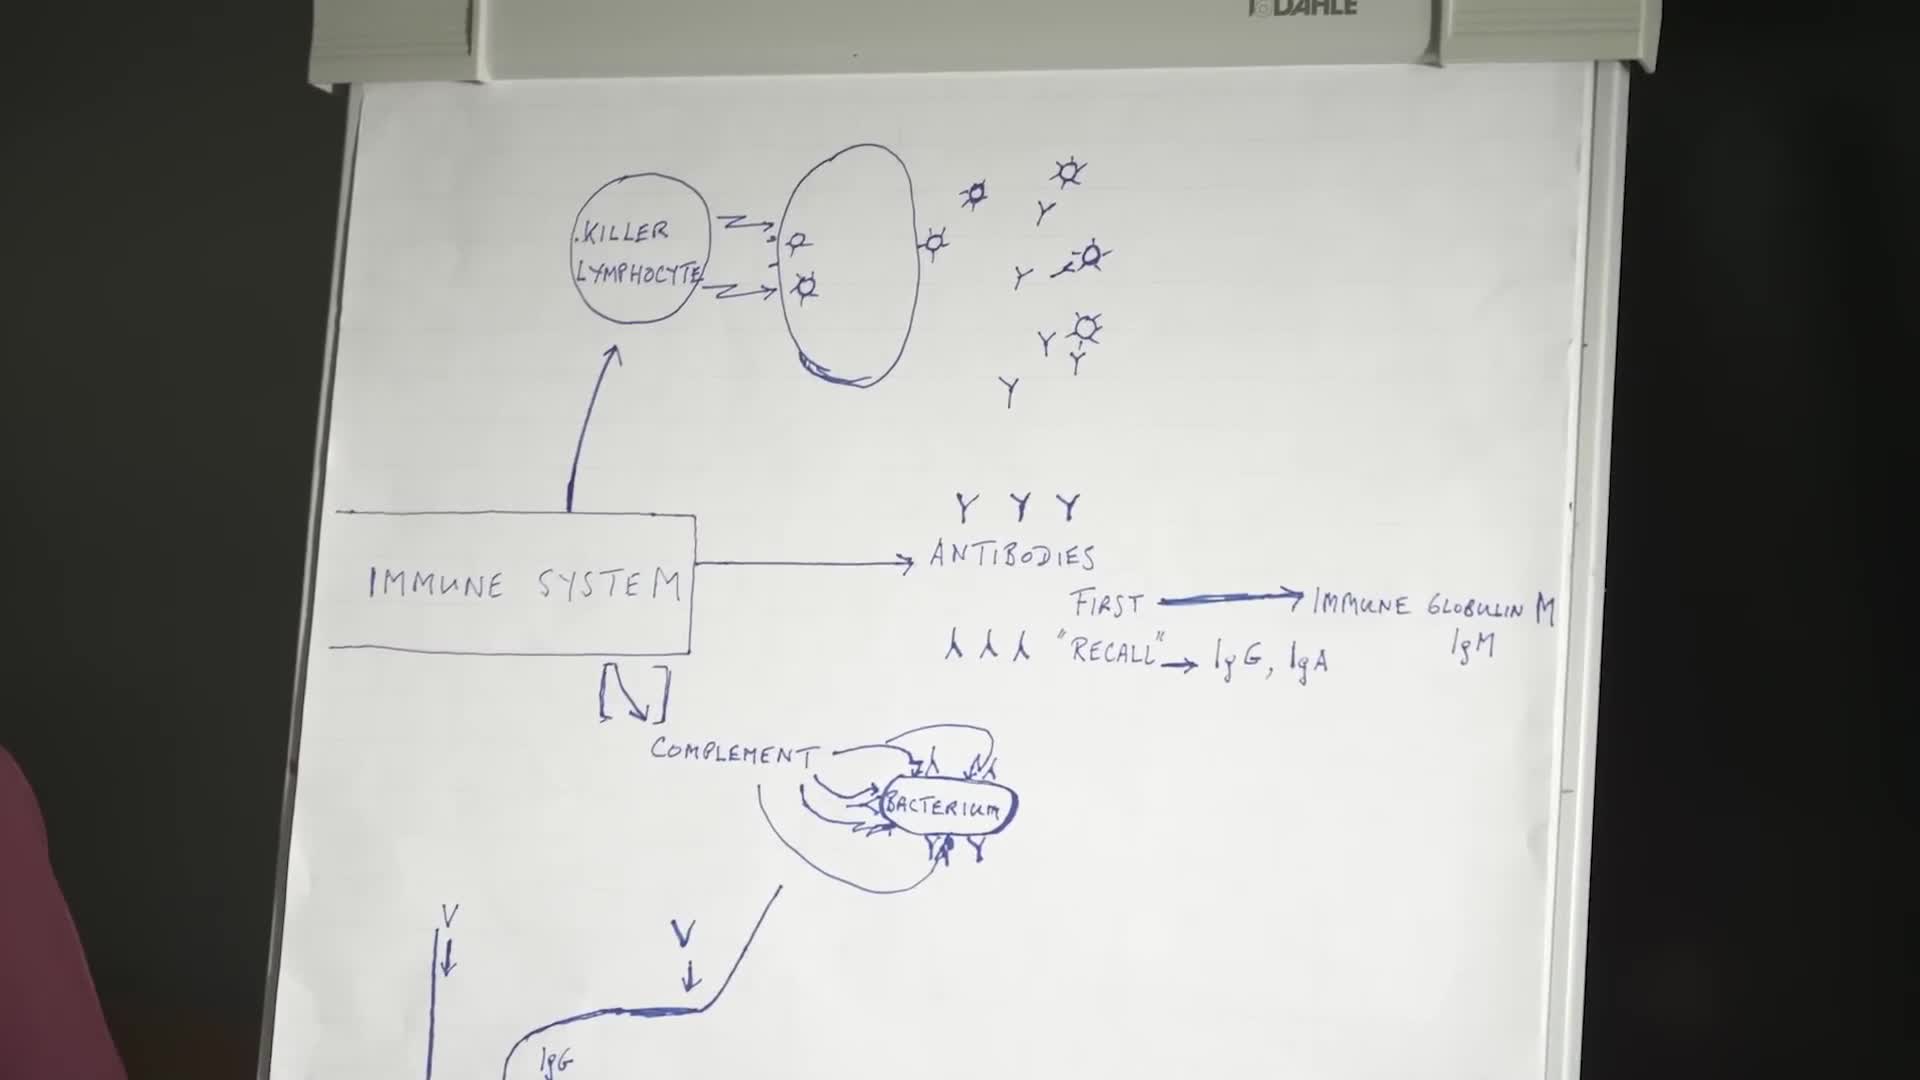 DAHLE
KILLER
LYMPHOCYTE
ANTIBODIES
IMMUNE SYSTEM
FIRST → IMMUNE GLOBULIN M
IgM
"RECALL" → IgG, IgA
COMPLEMENT
BACTERIUM
V
V
IgG